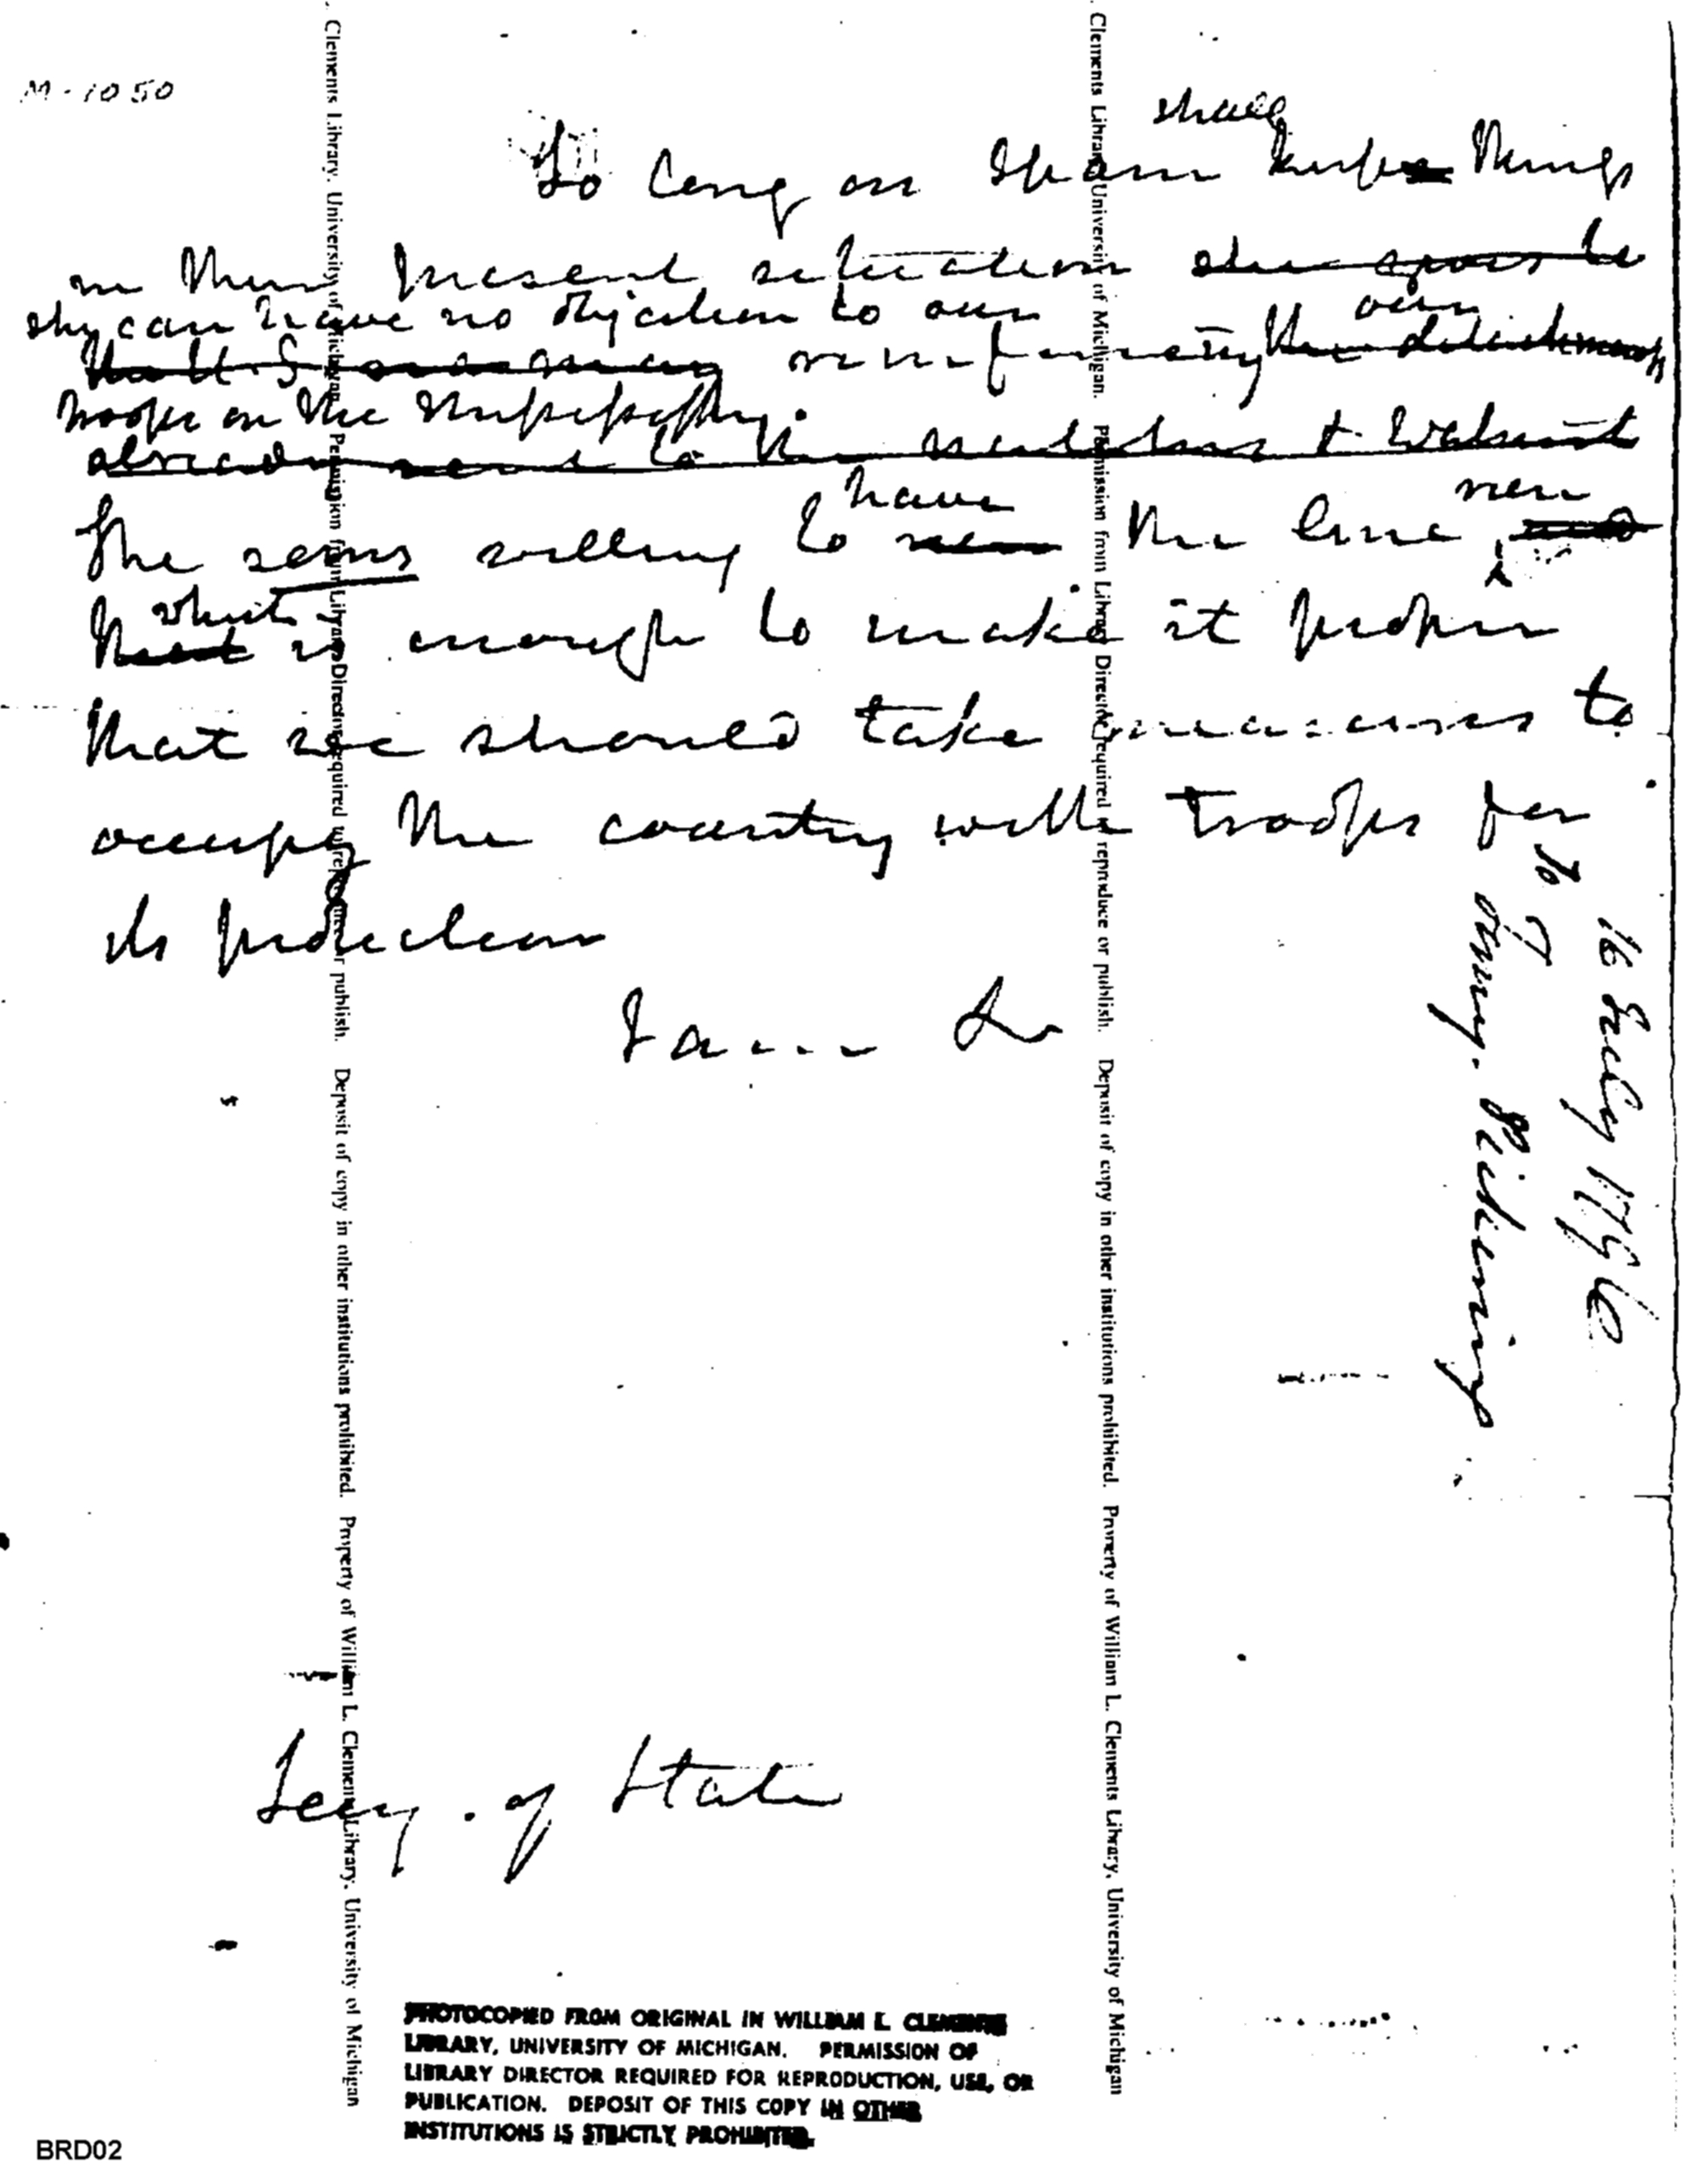 M-1050
shall
So long as Spain keeps things
in their present situation she
she can have no objection to our
our
the U.S. reinforcing the detachments
troops on the Mississippi.
already sent to the
have
new
The seems willing to the line
which
that is enough to make it proper
that we should take measures to
occupy the country with troops for
its protection
I am
Secy. of State
To T
Pickering
16 July 1796
Clements Library, University of Michigan. Permission from Library Director required to reproduce or publish. Deposit of copy in other institutions prohibited. Property of William L. Clements Library, University of Michigan
Clements Library, University of Michigan. Permission from Library Director required to reproduce or publish. Deposit of copy in other institutions prohibited. Property of William L. Clements Library, University of Michigan
PHOTOCOPIED FROM ORIGINAL IN WILLIAM L. CLEMENTS
LIBRARY, UNIVERSITY OF MICHIGAN. PERMISSION OF
LIBRARY DIRECTOR REQUIRED FOR REPRODUCTION, USE, OR
PUBLICATION. DEPOSIT OF THIS COPY IN OTHER
INSTITUTIONS IS STRICTLY PROHIBITED.
BRD02